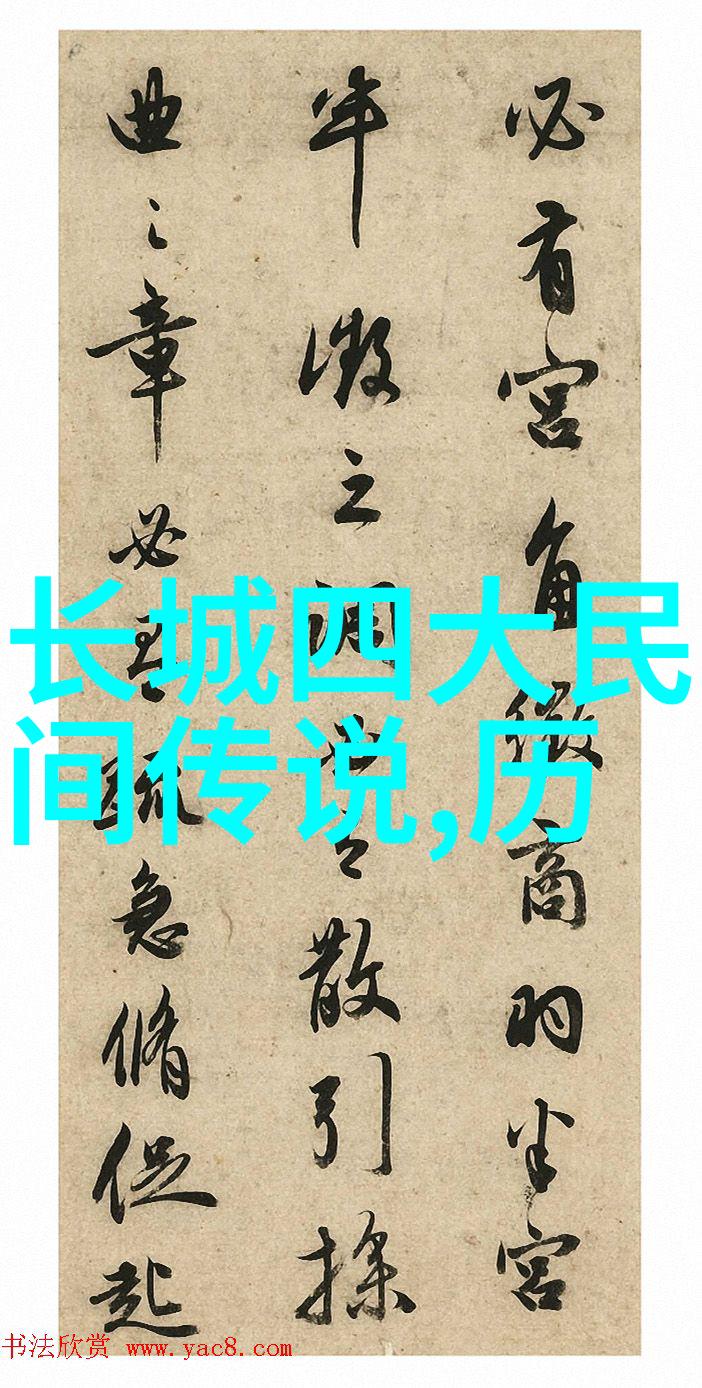 必有宮角徵商羽半宮
半徵之調散引操
曲之章必疏急脩促起
长城四大民
间传说,历
书法欣赏 www.yac8.com